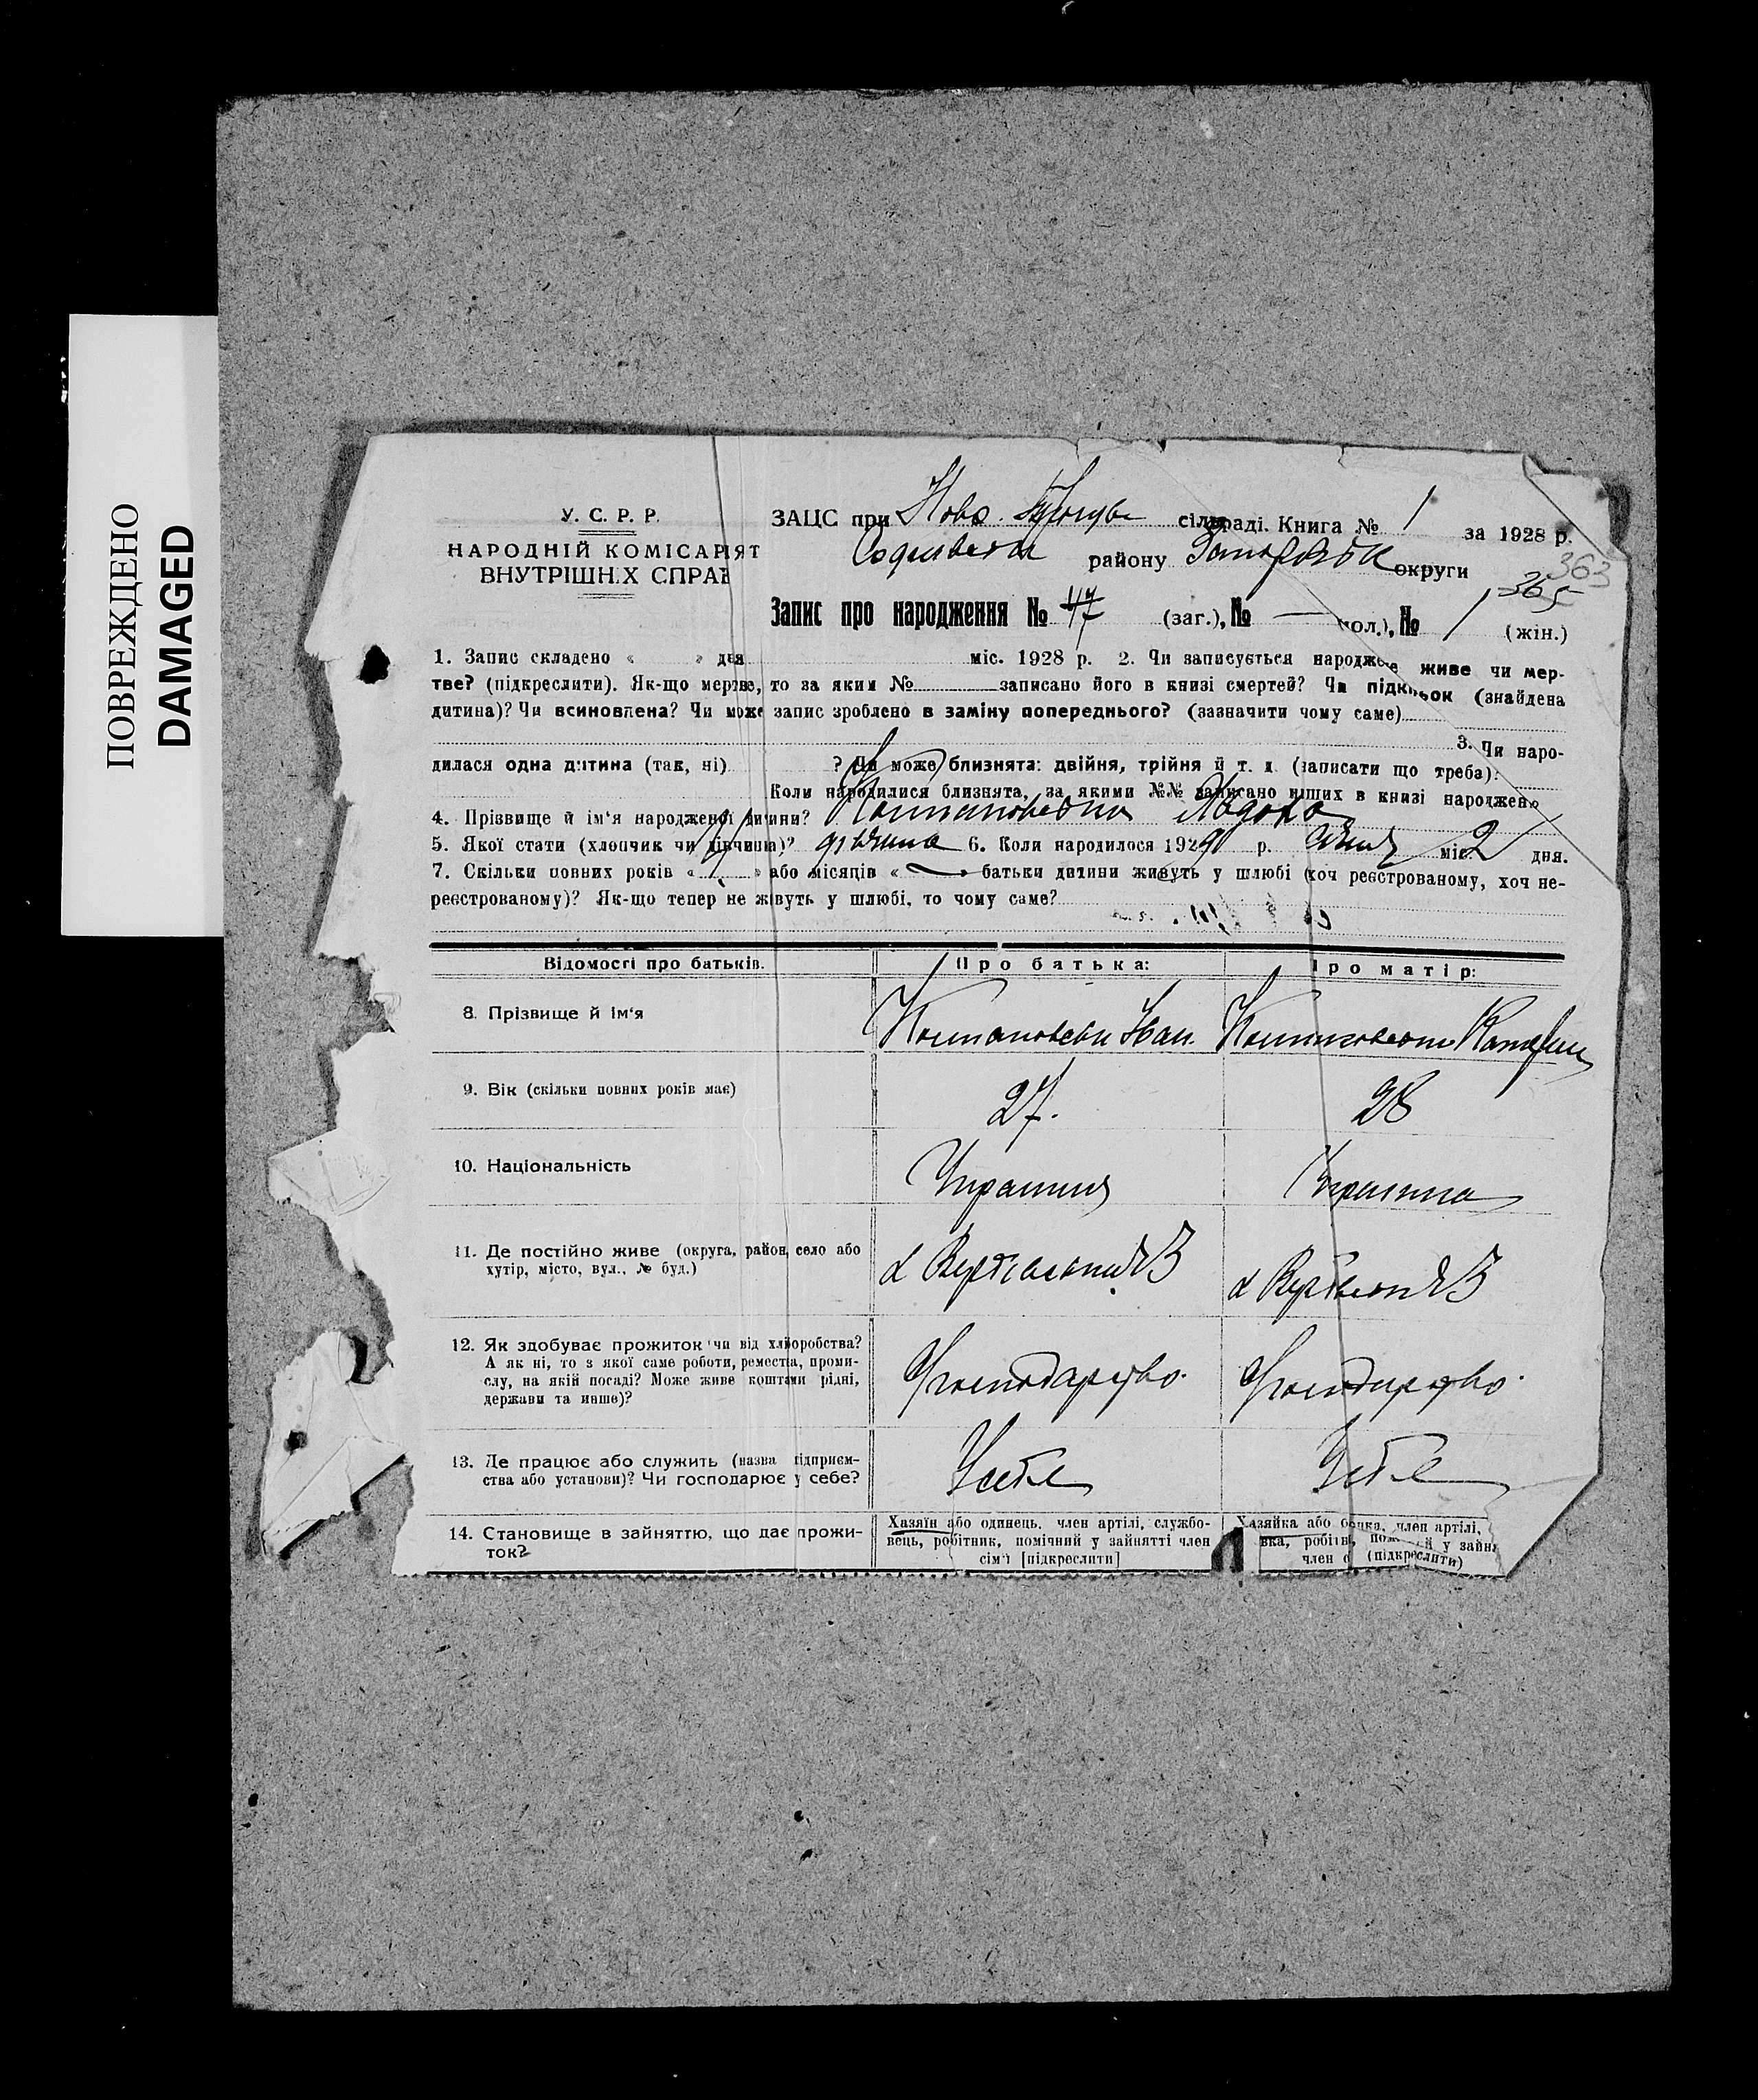 ПОВРЕЖДЕНО
DAMAGED
У. С. Р. Р.
НАРОДНІЙ КОМІСАРІЯТ
ВНУТРІШНІХ СПРАВ
ЗАЦС при Ново. сільраді. Книга № 1 за 1928 р.
району округи
363
365
Запис про народження № 47 (заг.), № — (чол.), № 1 (жін.)
1. Запис складено « » дня міс. 1928 р. 2. Чи записується народжене живе чи мер-
тве? (підкреслити). Як-що мертве, то за яким № записано його в книзі смертей? Чи підкидьок (знайдена
дитина)? Чи всиновлена? Чи може запис зроблено в заміну попереднього? (зазначити чому саме)
3. Чи наро-
дилася одна дитина (так, ні) ? Чи може близнята: двійня, трійня й т. д. (записати що треба).
Коли народилися близнята, за якими №№ записано инших в книзі народжень
4. Прізвище й ім'я народженої дитини?
5. Якої стати (хлопчик чи дівчина)? дівчина 6. Коли народилося 1929 р. міс. 2 дня.
7. Скільки повних років « » або місяців « » батьки дитини живуть у шлюбі (хоч реєстрованому, хоч не-
реєстрованому)? Як-що тепер не живуть у шлюбі, то чому саме?
Відомості про батьків. Про батька: Про матір:
8. Прізвище й ім'я Іван.
9. Вік (скільки повних років має) 27. 28
10. Національність
11. Де постійно живе (округа, район, село або
хутір, місто, вул., № буд.)
12. Як здобуває прожиток чи від хліборобства?
А як ні, то з якої саме роботи, ремества, проми-
слу, на якій посаді? Може живе коштами рідні,
держави та инше)?
Господарство. Господарство.
13. Де працює або служить (назва підприєм-
ства або установи)? Чи господарює у себе?
У себе У себе
14. Становище в зайняттю, що дає прожи-
ток?
Хазяїн або одинець, член артілі, службо-
вець, робітник, помічний у зайнятті член
сім'ї [підкреслити]
Хазяйка або член артілі,
вка, у зайн
член (підкреслити)